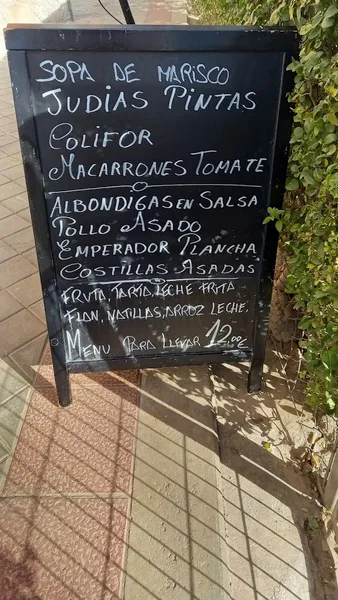 SOPA DE MARISCO
JUDIAS PINTAS
COLIFOR
MACARRONES TOMATE
ALBONDIGAS EN SALSA
POLLO ASADO
EMPERADOR PLANCHA
COSTILLAS ASADAS
FRUTA, TARTA, LECHE FRITA
FLAN, NATILLAS, ARROZ LECHE.
MENU PARA LLEVAR 12,00€